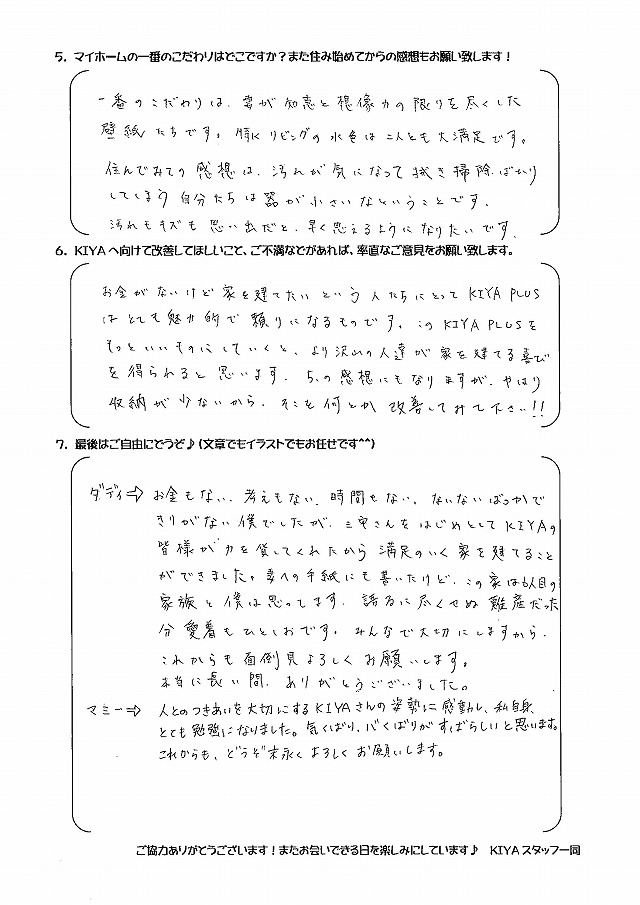 5. マイホームの一番のこだわりはどこですか？また住み始めてからの感想もお願い致します！
一番のこだわりは、妻が知恵と想像力の限りを尽くした
壁紙たちです。特にリビングの水色は二人とも大満足です。
住んでみての感想は、汚れが気になって拭き掃除ばかり
してしまう自分たちは器が小さいなということです。
汚れもキズも思い出だと、早く思えるようになりたいです。
6. KIYAへ向けて改善してほしいこと、ご不満などがあれば、率直なご意見をお願い致します。
お金がないけど家を建てたいという人たちにとってKIYA PLUS
はとても魅力的で頼りになるものです。このKIYA PLUSを
もっといいものにしていくと、より沢山の人達が家を建てる喜び
を得られると思います。5.の感想にもなりますが、やはり
収納が少ないから、そこを何とか改善してみて下さい!!
7. 最後はご自由にどうぞ♪(文章でもイラストでもお任せです^^)
ダディ⇨ お金もない、考えもない、時間もない、ないないばっかで
きりがない僕でしたが、三宅さんをはじめとしてKIYAの
皆様が力を貸してくれたから満足のいく家を建てること
ができました。妻への手紙にも書いたけど、この家は6人目の
家族と僕は思ってます。語るに尽くせぬ難産だった
分愛着もひとしおです。みんなで大切にしますから、
これからも面倒見よろしくお願いします。
本当に長い間、ありがとうございました。
マミー⇨ 人とのつきあいを大切にするKIYAさんの姿勢に感動し、私自身
とても勉強になりました。気くばり、心くばりがすばらしいと思います。
これからも、どうぞ末永くよろしくお願いします。
ご協力ありがとうございます！またお会いできる日を楽しみにしています♪ KIYAスタッフ一同